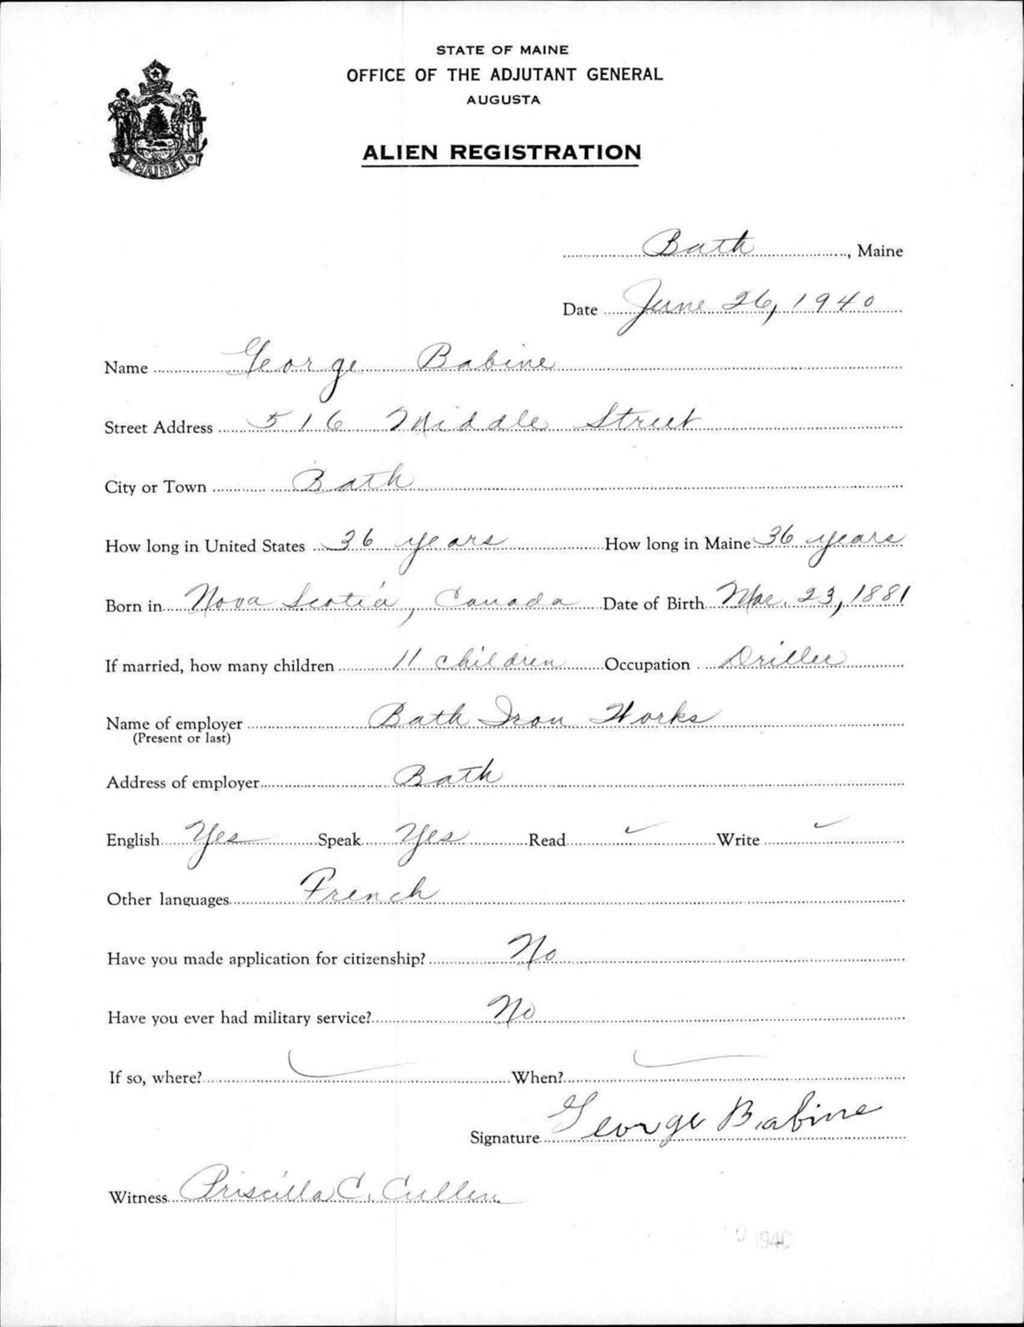 STATE OF MAINE
OFFICE OF THE ADJUTANT GENERAL
AUGUSTA
ALIEN REGISTRATION
MAINE
Bath, Maine
Date June 26, 1940
Name George Babine
Street Address 516 Middle Street
City or Town Bath
How long in United States 36 years How long in Maine 36 years
Born in Nova Scotia, Canada Date of Birth Mar. 23, 1881
If married, how many children 11 children Occupation Driller
Name of employer Bath Iron Works
(Present or last)
Address of employer Bath
English Yes Speak Yes Read ✓ Write ✓
Other languages French
Have you made application for citizenship? No
Have you ever had military service? No
If so, where? ✓ When? ✓
Signature George Babine
Witness Priscilla C. Cullen
1940